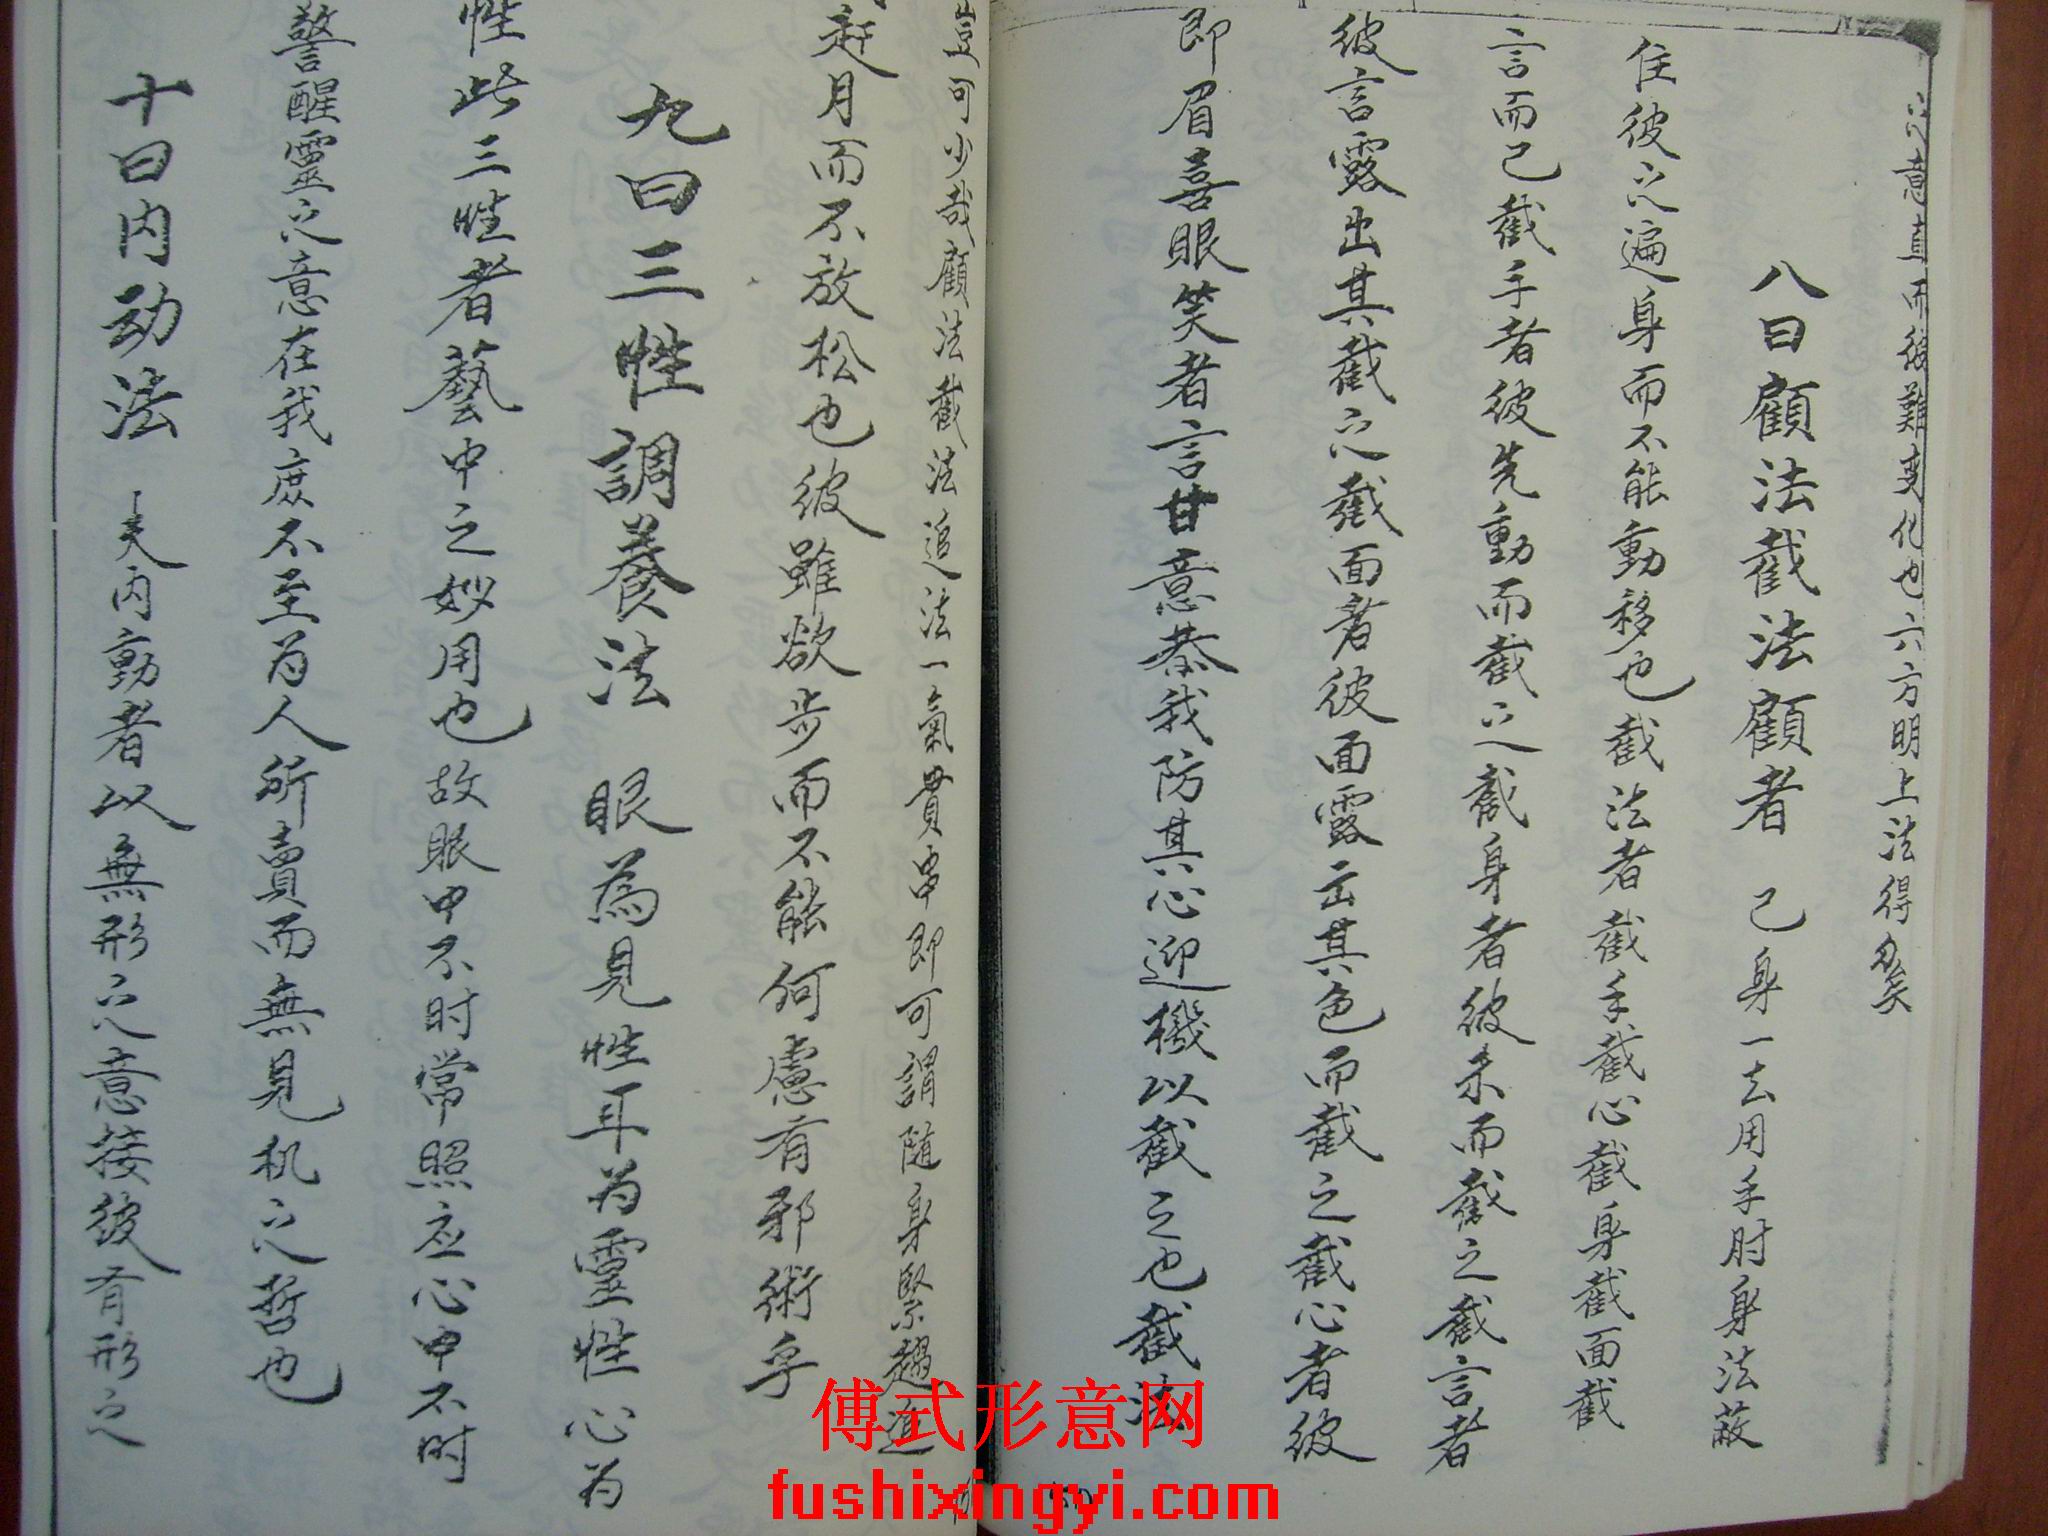 之意直而後難变化也六方明上法得多矣
八曰顧法截法顧者 己身一去用手肘身法蔽
住彼之遍身而不能動移也截法者截手截心截身截面截
言而已截手者彼先動而截之截身者彼未而截之截言者
彼言露出其截之截面者彼面露出其色而截之截心者彼
即眉喜眼笑者言甘意恭我防其心迎機以截之也截法
豈可少哉顧法截法追法一氣貫串即可謂随身緊趨進
赶月而不放松也彼雖欲步而不能何慮有邪術乎
九曰三性調養法 眼為見性耳为靈性心为
性此三性者藝中之妙用也故眼中不时常照应心中不时
警醒靈之意在我庶不至为人所賣而無見机之哲也
十曰内动法 夫内動者以無形之意接彼有形之
傅式形意网
fushixingyi.com